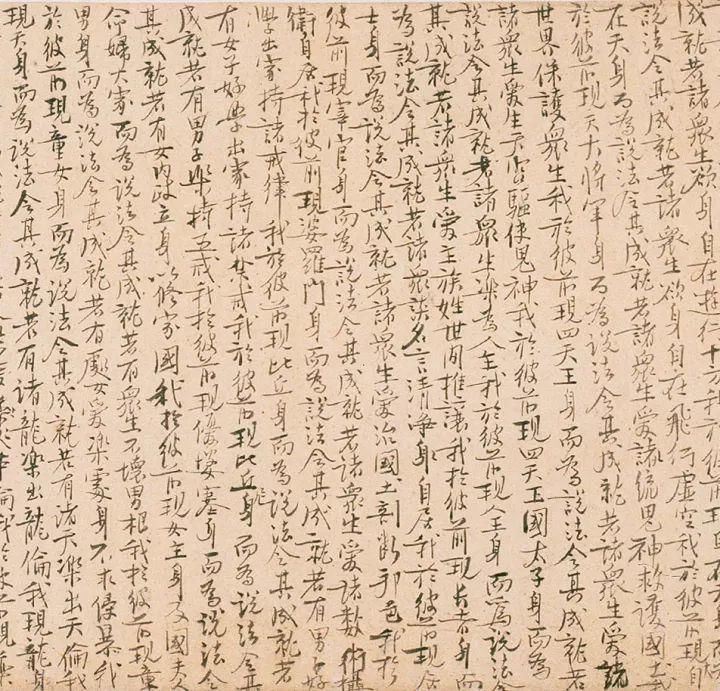 成就若諸眾生欲身自在遊行十方我於彼前現
說法令其成就若諸眾生欲身自在飛行虛空我於彼前現自
在天身而為說法令其成就若諸眾生愛諸統鬼神救護國土我
於彼前現天大將軍身而為說法令其成就若諸眾生愛統
世界保護眾生我於彼前現四天王身而為說法令其成就若
諸眾生愛生天宮驅使鬼神我於彼前現四天王國太子身而為
說法令其成就若諸眾生樂為人王我於彼前現人王身而為說法令
其成就若諸眾生愛主族姓世間推讓我於彼前現長者身而
為說法令其成就若諸眾談名言清淨身自居我於彼前現居
士身而為說法令其成就若諸眾生愛治國土剖斷邦邑我於
彼前現宰官身而為說法令其成就若諸眾生愛諸數術攝
衛身居我於彼前現婆羅門身而為說法令其成就若有男子好
學出家持諸戒律我於彼前現比丘身而為說法令其成就若
有女子好學出家持諸禁戒我於彼前現比丘尼身而為說法令其
成就若有男子樂持五戒我於彼前現優婆塞身而為說法令
其成就若有女內政立身以修家國我於彼前現女主身及國夫
命婦大家而為說法令其成就若有眾生不壞男根我於彼前現童
男身而為說法令其成就若有處女愛樂處身不求侵暴我
於彼前現童女身而為說法令其成就若有諸天樂出天倫我
現天身而為說法令其成就若有諸龍樂出龍倫我現龍身